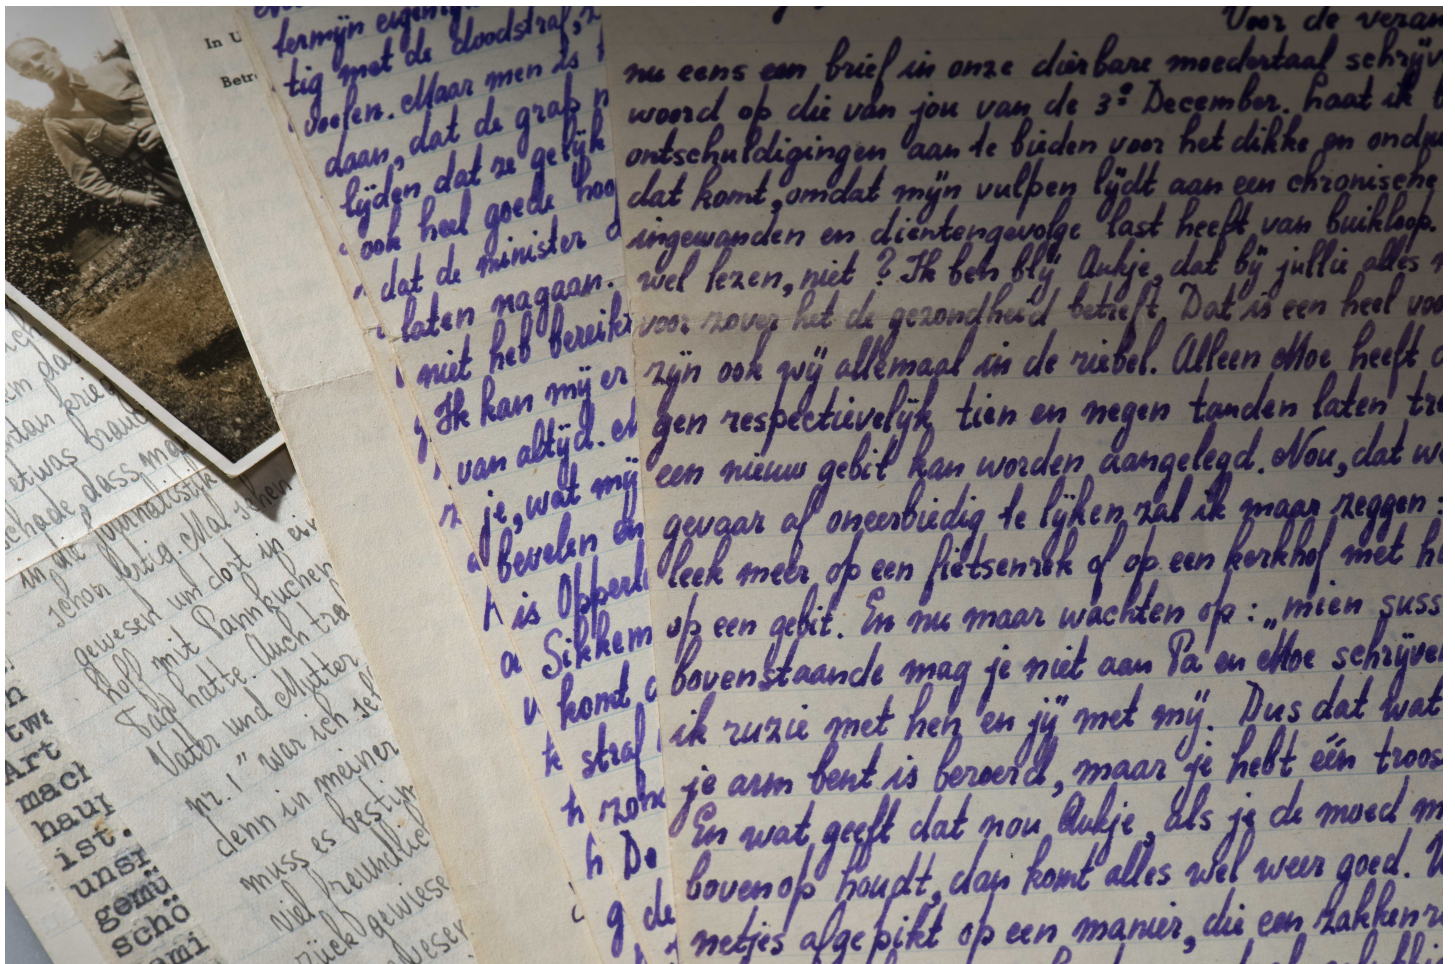 In U
Betr
termijn eigenlijk
tig met de doodstraf, z
voelen. Maar men is
daan, dat de graf
lijden dat ze gelijk
ook heel goede hoo
dat de minister d
laten nagaan.
niet heb bereik
Ik kan mij er
van altijd. M
je, wat mij
bevelen en
is Opperb
Sikkem
komt
straf
zonx
De
de
Voor de veran
nu eens een brief in onze dierbare moedertaal schrijv
woord op die van jou van de 3e December. Laat ik b
ontschuldigingen aan te bieden voor het dikke en ondui
dat komt, omdat mijn vulpen lijdt aan een chronische
ingewanden en dientengevolge last heeft van buikloop.
wel lezen, niet? Ik ben blij Aukje, dat bij jullie alles
voor zover het de gezondheid betreft. Dat is een heel voo
zijn ook wij allemaal in de riebel. Alleen Moe heeft
gen respectievelijk tien en negen tanden laten tre
een nieuw gebit kan worden aangelegd. Nou, dat w
gevaar af oneerbiedig te lijken zal ik maar zeggen:
leek meer op een fietsenrek of op een kerkhof met h
op een gebit. En nu maar wachten op: „mien suss
bovenstaande mag je niet aan Pa en Moe schrijven
ik ruzie met hen en jij met mij. Dus dat wat
je arm bent is beroerd, maar je hebt één troos
En wat geeft dat nou Aukje, als je de moed m
bovenop houdt, dan komt alles wel weer goed.
netjes afgepikt op een manier, die een zakkenr
etwas brauc
schade, dass ma
in die journalistik
schon fertig. Mal sehen
gewesen und dort in ein
hoff mit Pannkuchen
Tag hatte. Auch tra
Vater und Mutter
nr. 1" war ich sel
denn in meiner
muss es bestim
viel freundlich
zurückgewiese
dieser
n
twe
Art
mach
haup
ist.
unsr
gemü
schö
ami